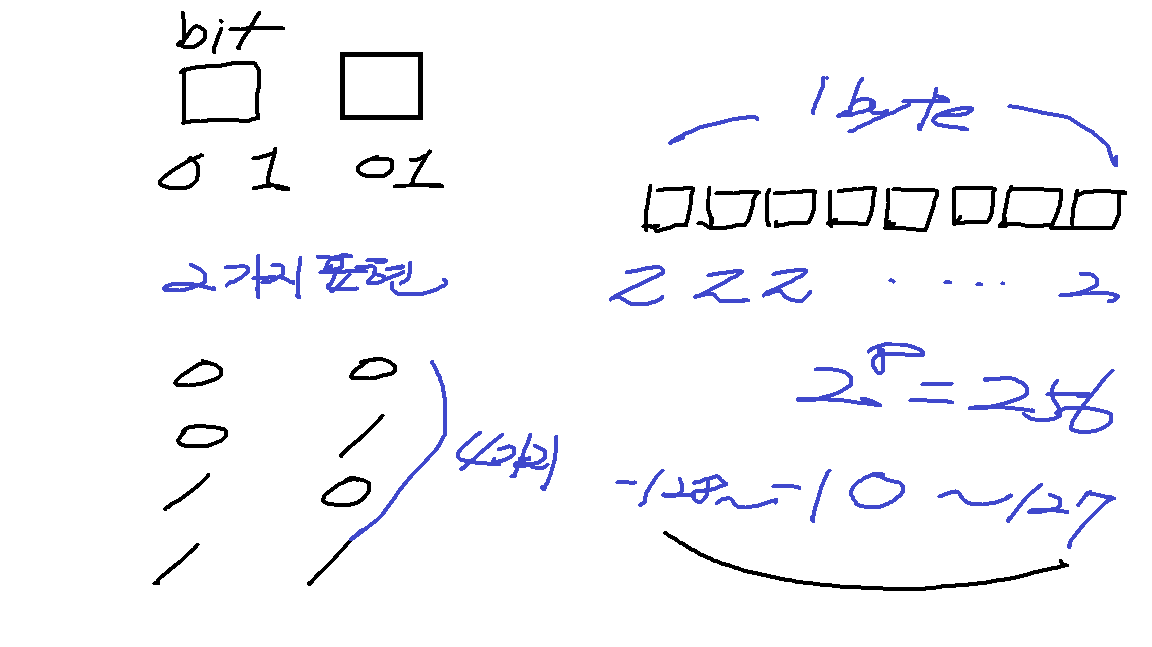 bit
0 1 01
2가지 표현
0 0
0 1
1 0
1 1
4가지
1 byte
2 2 2 . . . . . 2
2⁸ = 256
-128 ~ -1 0 ~ 127